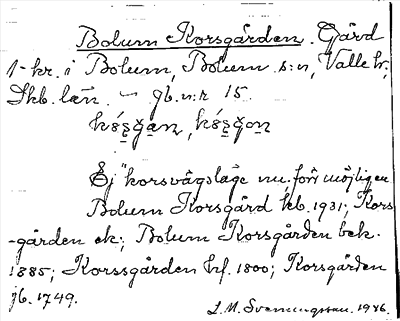 Bolum Korsgården. Gård
1 kr. i Bolum, Bolum s:n, Valle hd,
Skb. län. – gb. n:r 15.
Ej korsvägsläge nu, förr möjligen
Bolum Korsgård kb. 1931; Kors-
-gården ek; Bolum Korsgården bek.
1885; Korssgården hf. 1800; Korsgården
jb. 1749.
L. M. Svenungsson. 1936.